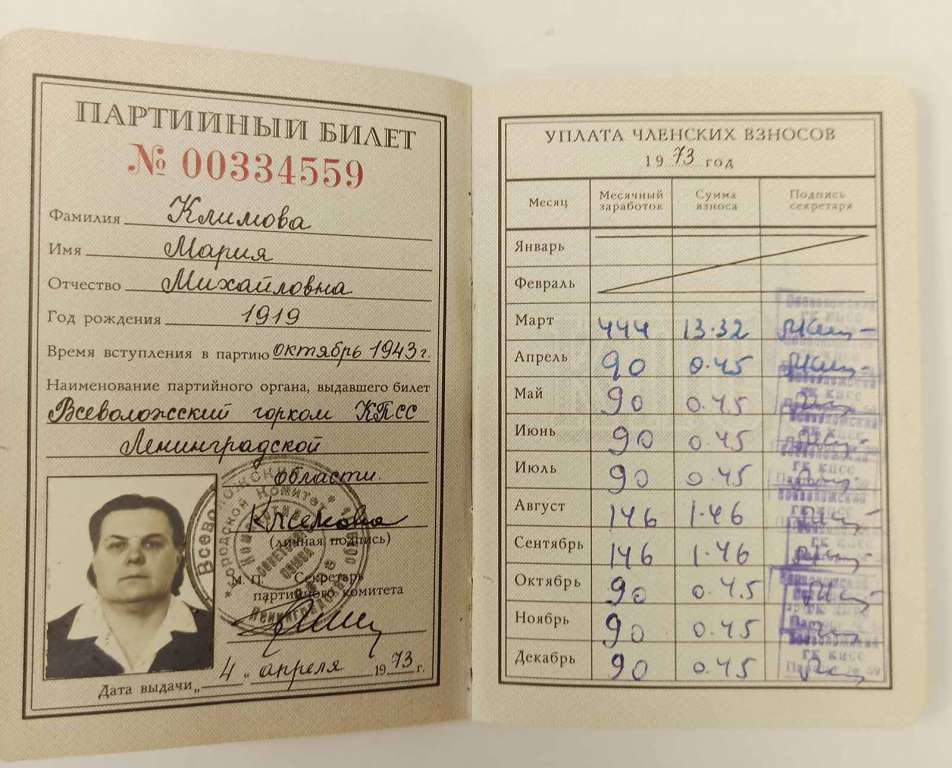 ПАРТИЙНЫЙ БИЛЕТ
№ 00334559
Фамилия Климова
Имя Мария
Отчество Михайловна
Год рождения 1919
Время вступления в партию октябрь 1943 г.
Наименование партийного органа, выдавшего билет
Всеволожский горком КПСС
Ленинградской
области.
(личная подпись)
М. П. Секретарь
партийного комитета
Дата выдачи „4„ апреля 1973 г.
УПЛАТА ЧЛЕНСКИХ ВЗНОСОВ
1973 год
Месяц Месячный заработок Сумма взноса Подпись секретаря
Январь
Февраль
Март 444 13-32
Апрель 90 0.45
Май 90 0.45
Июнь 90 0.45
Июль 90 0.45
Август 146 1-46
Сентябрь 146 1-46
Октябрь 90 0.45
Ноябрь 90 0.45
Декабрь 90 0.45